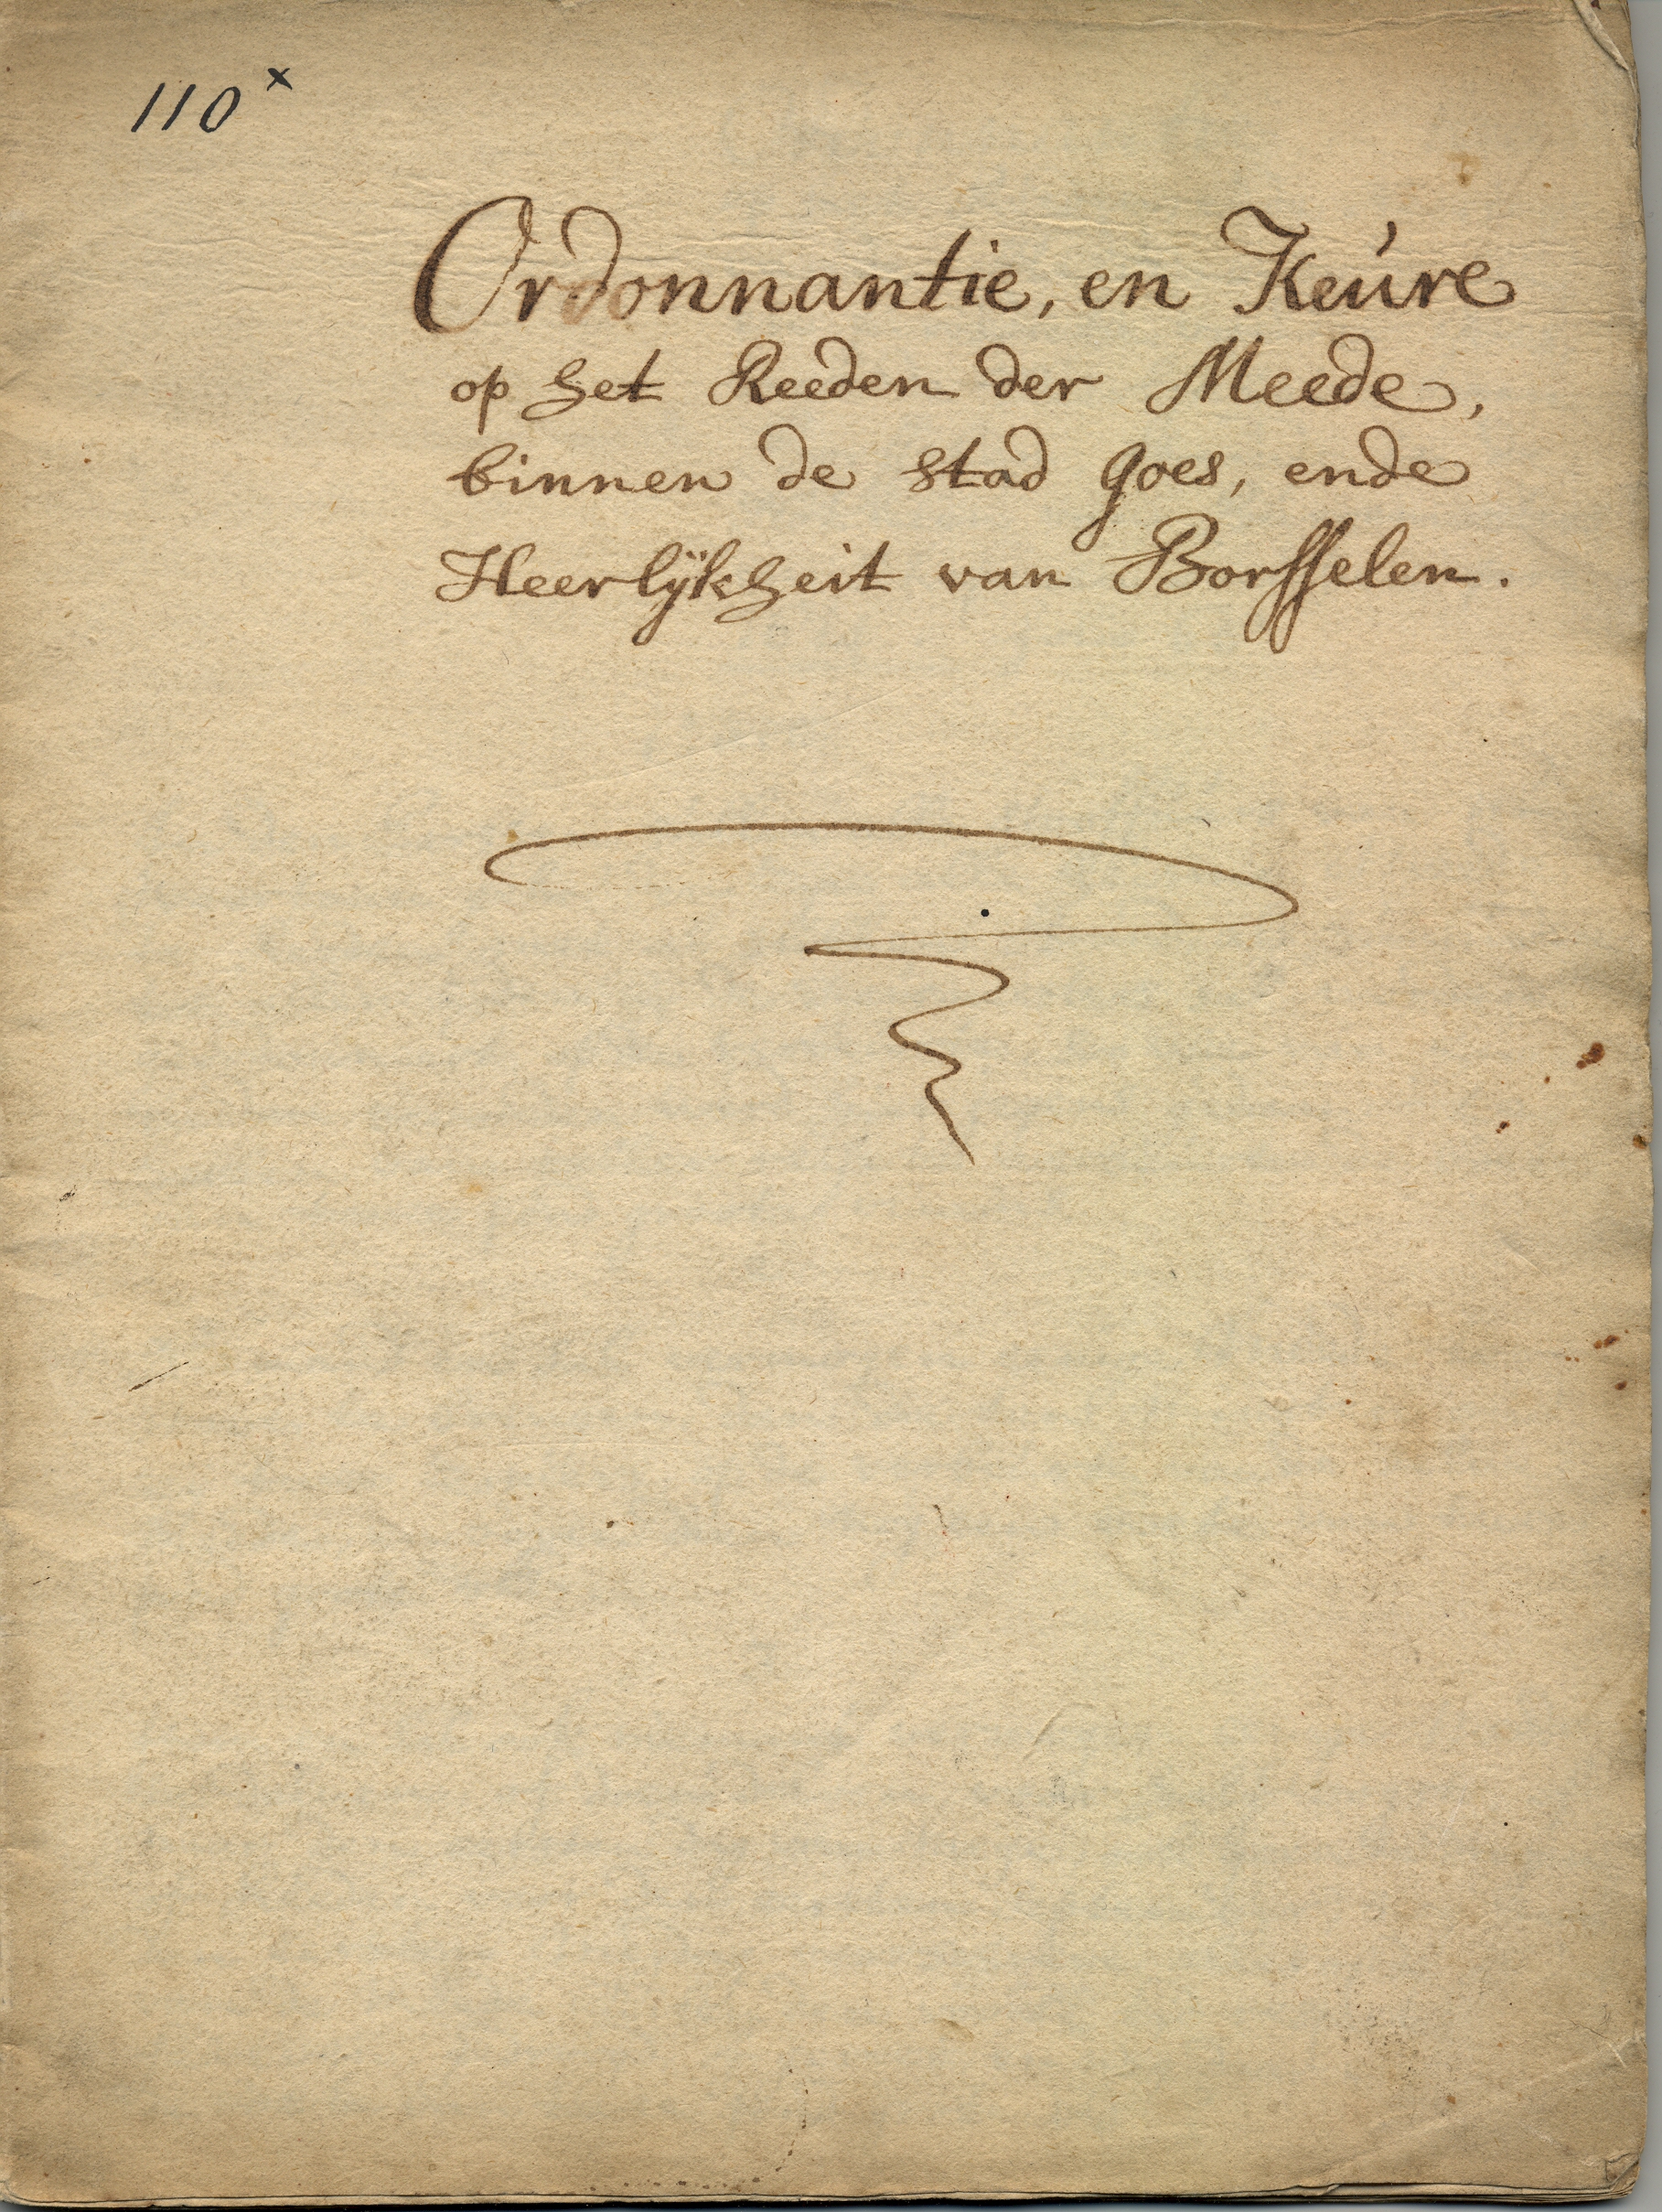 110x
Ordonnantie, en Keúre
op het Reeden der Meede,
binnen de Stad Goes, ende
Heerlÿkheit van Borsselen.